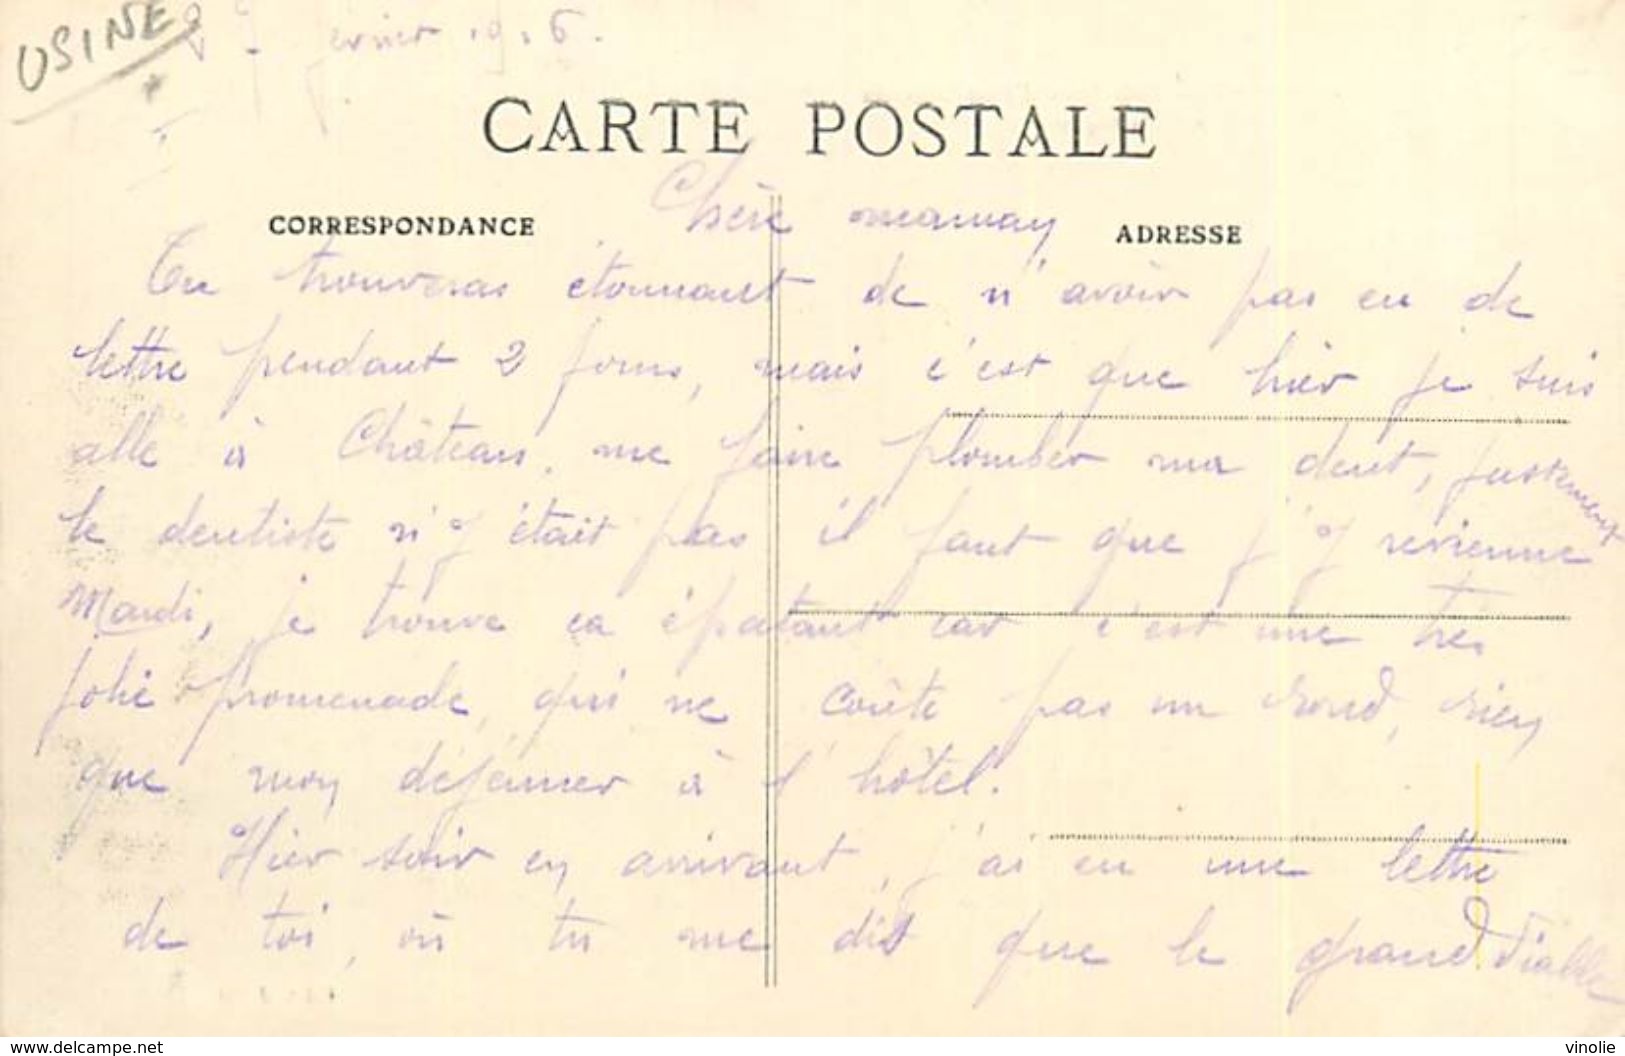 USINE
février 1916.
CARTE POSTALE
CORRESPONDANCE
ADRESSE
Chère maman
Tu trouveras étonnant de n'avoir pas eu de
lettre pendant 2 jours, mais c'est que hier je suis
allé à Château, me faire plomber ma dent, justement
le dentiste n'y était pas il faut que j'y revienne
Mardi, je trouve ça épatant car c'est une très
jolie promenade, qui ne coûte pas un rond, rien
que mon déjeuner à l'hôtel.
Hier soir en arrivant, j'ai eu une lettre
de toi, où tu me dis que le grand diable
www.delcampe.net
vinolie